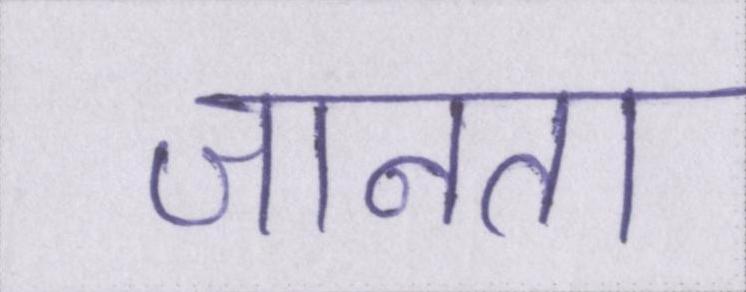 जानता